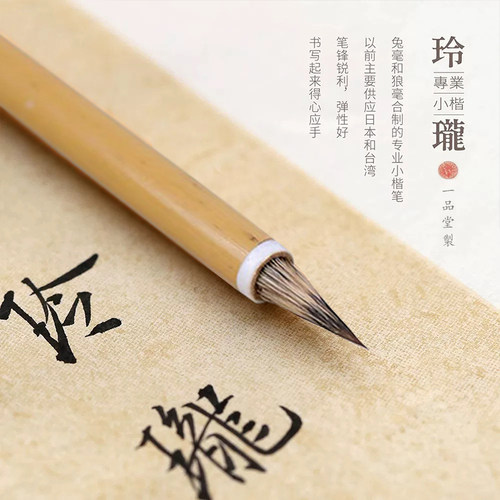 玲
專業
小楷
瓏
一品堂製
兔毫和狼毫合制的专业小楷笔
以前主要供应日本和台湾
笔锋锐利，弹性好
书写起来得心应手
玲
瓏